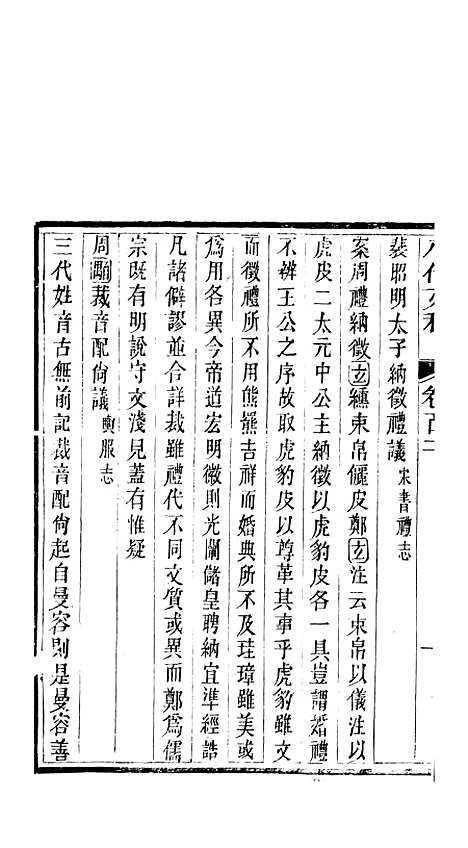 八代文粹　卷百二　一
裴昭明太子納徵禮議　宋書禮志
案周禮納徵玄纁束帛儷皮鄭玄注云束帛以儀注以
虎皮二太元中公主納徵以虎豹皮各一具豈謂婚禮
不辨王公之序故取虎豹皮以尊革其事乎虎豹雖文
而徵禮所不用熊羆吉祥而婚典所不及珪璋雖美或
爲用各異今帝道宏明徽則光闡儲皇聘納宜準經誥
凡諸僻謬並合詳裁雖禮代不同文質或異而鄭爲儒
宗旣有明說守文淺見蓋有惟疑
周𩥇裁音配尙議　輿服志
三代姓音古無前記裁音配尙起自曼容則是曼容善